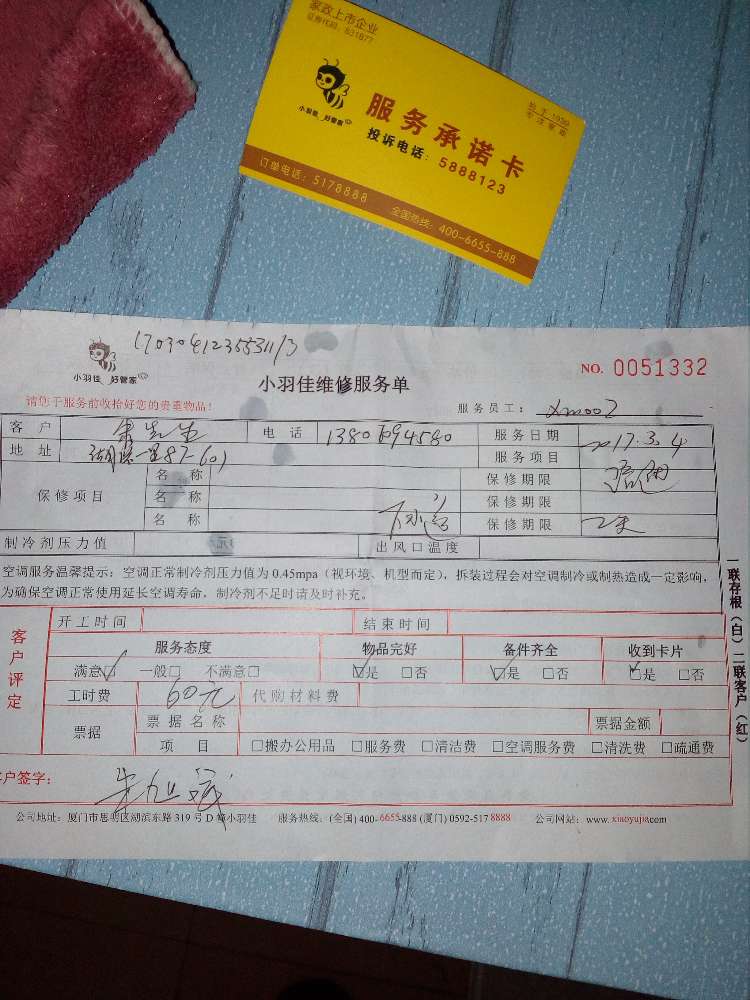 家政上市企业
证券代码：831877
小羽佳 好管家
服务承诺卡
投诉电话：5888123
始于1999
专注家政
订单电话：5178888 全国热线：400-6655-888
小羽佳 好管家
小羽佳维修服务单
NO. 0051332
请您于服务前收拾好您的贵重物品！
服务员工：xm002
客户 先生 电话 服务日期 2017.3.4
地址 一里87-601 服务项目 疏通
保修项目
名称 保修期限
名称 保修期限
名称 下水道 保修期限
制冷剂压力值 出风口温度
空调服务温馨提示：空调正常制冷剂压力值为 0.45mpa（视环境、机型而定），拆装过程会对空调制冷或制热造成一定影响，
为确保空调正常使用延长空调寿命，制冷剂不足时请及时补充。
开工时间 结束时间
客户评定
服务态度 物品完好 备件齐全 收到卡片
满意☑ 一般□ 不满意□ ☑是 □否 ☑是 □否 ☑是 □否
工时费 60元 代购材料费
票据 票据名称 票据金额
项目 □搬办公用品 □服务费 □清洁费 □空调服务费 □清洗费 □疏通费
客户签字：
公司地址：厦门市思明区湖滨东路 319 号 D 幢小羽佳 服务热线：(全国) 400-6655-888 (厦门) 0592-517 8888 公司网站：www.xiaoyujia.com
一联存根（白）二联客户（红）